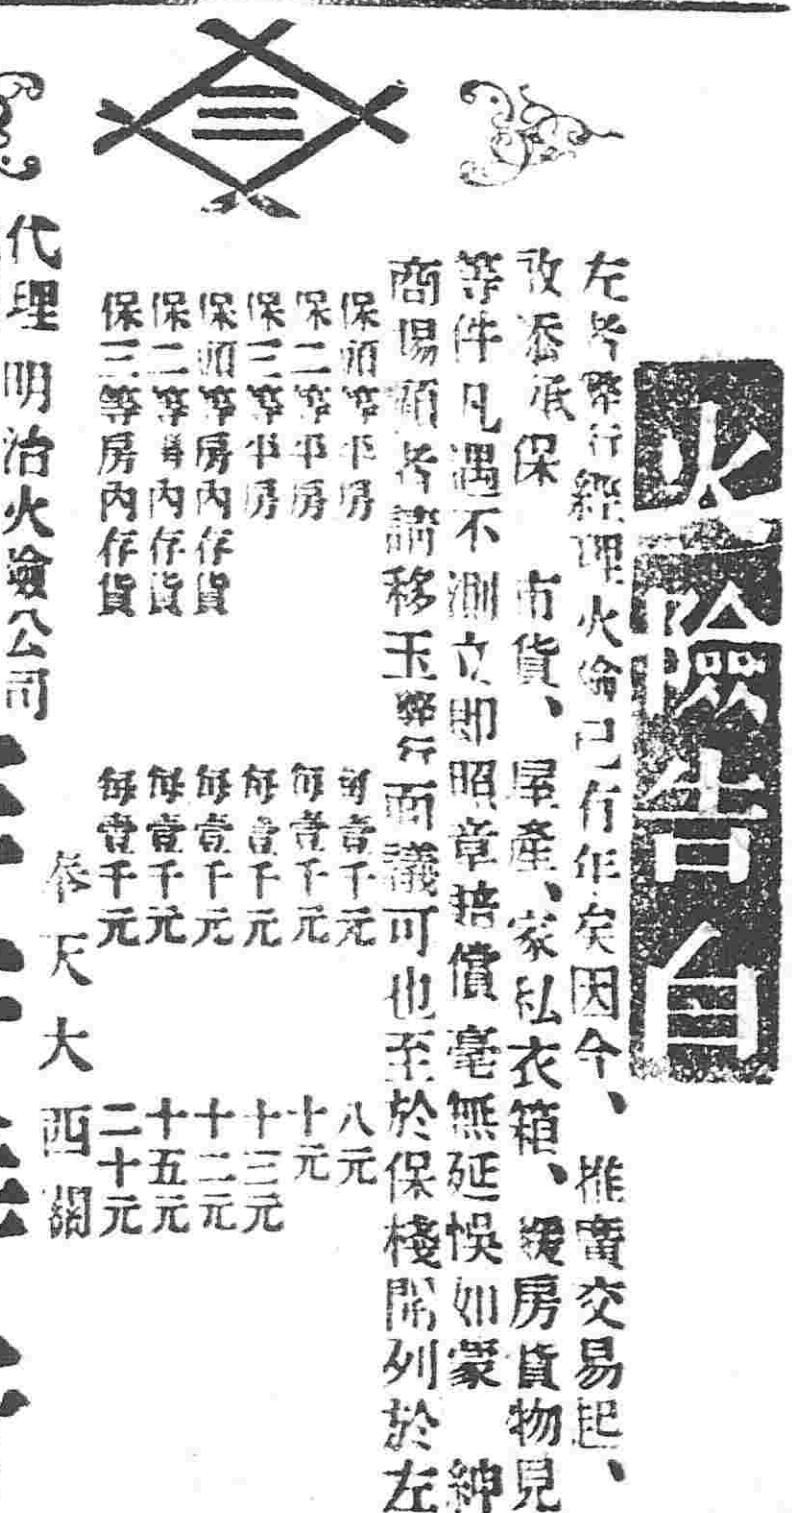 火險告白
左者弊行經理火險已有年矣因今、推廣交易起、
改添承保 市貨、屋產、家私衣箱、緩房貨物見
等件凡遇不測立即照章培償毫無延悞如蒙 紳
商賜顧者請移玉弊行面議可也至於保棧開列於左
保頭等平房 每壹千元 八元
保二等平房 每壹千元 十元
保三等平房 每壹千元 十三元
保頭等房內存貨 每壹千元 十二元
保二等房內存貨 每壹千元 十五元
保三等房內存貨 每壹千元 二十元
奉天大西關
代理 明治火險公司